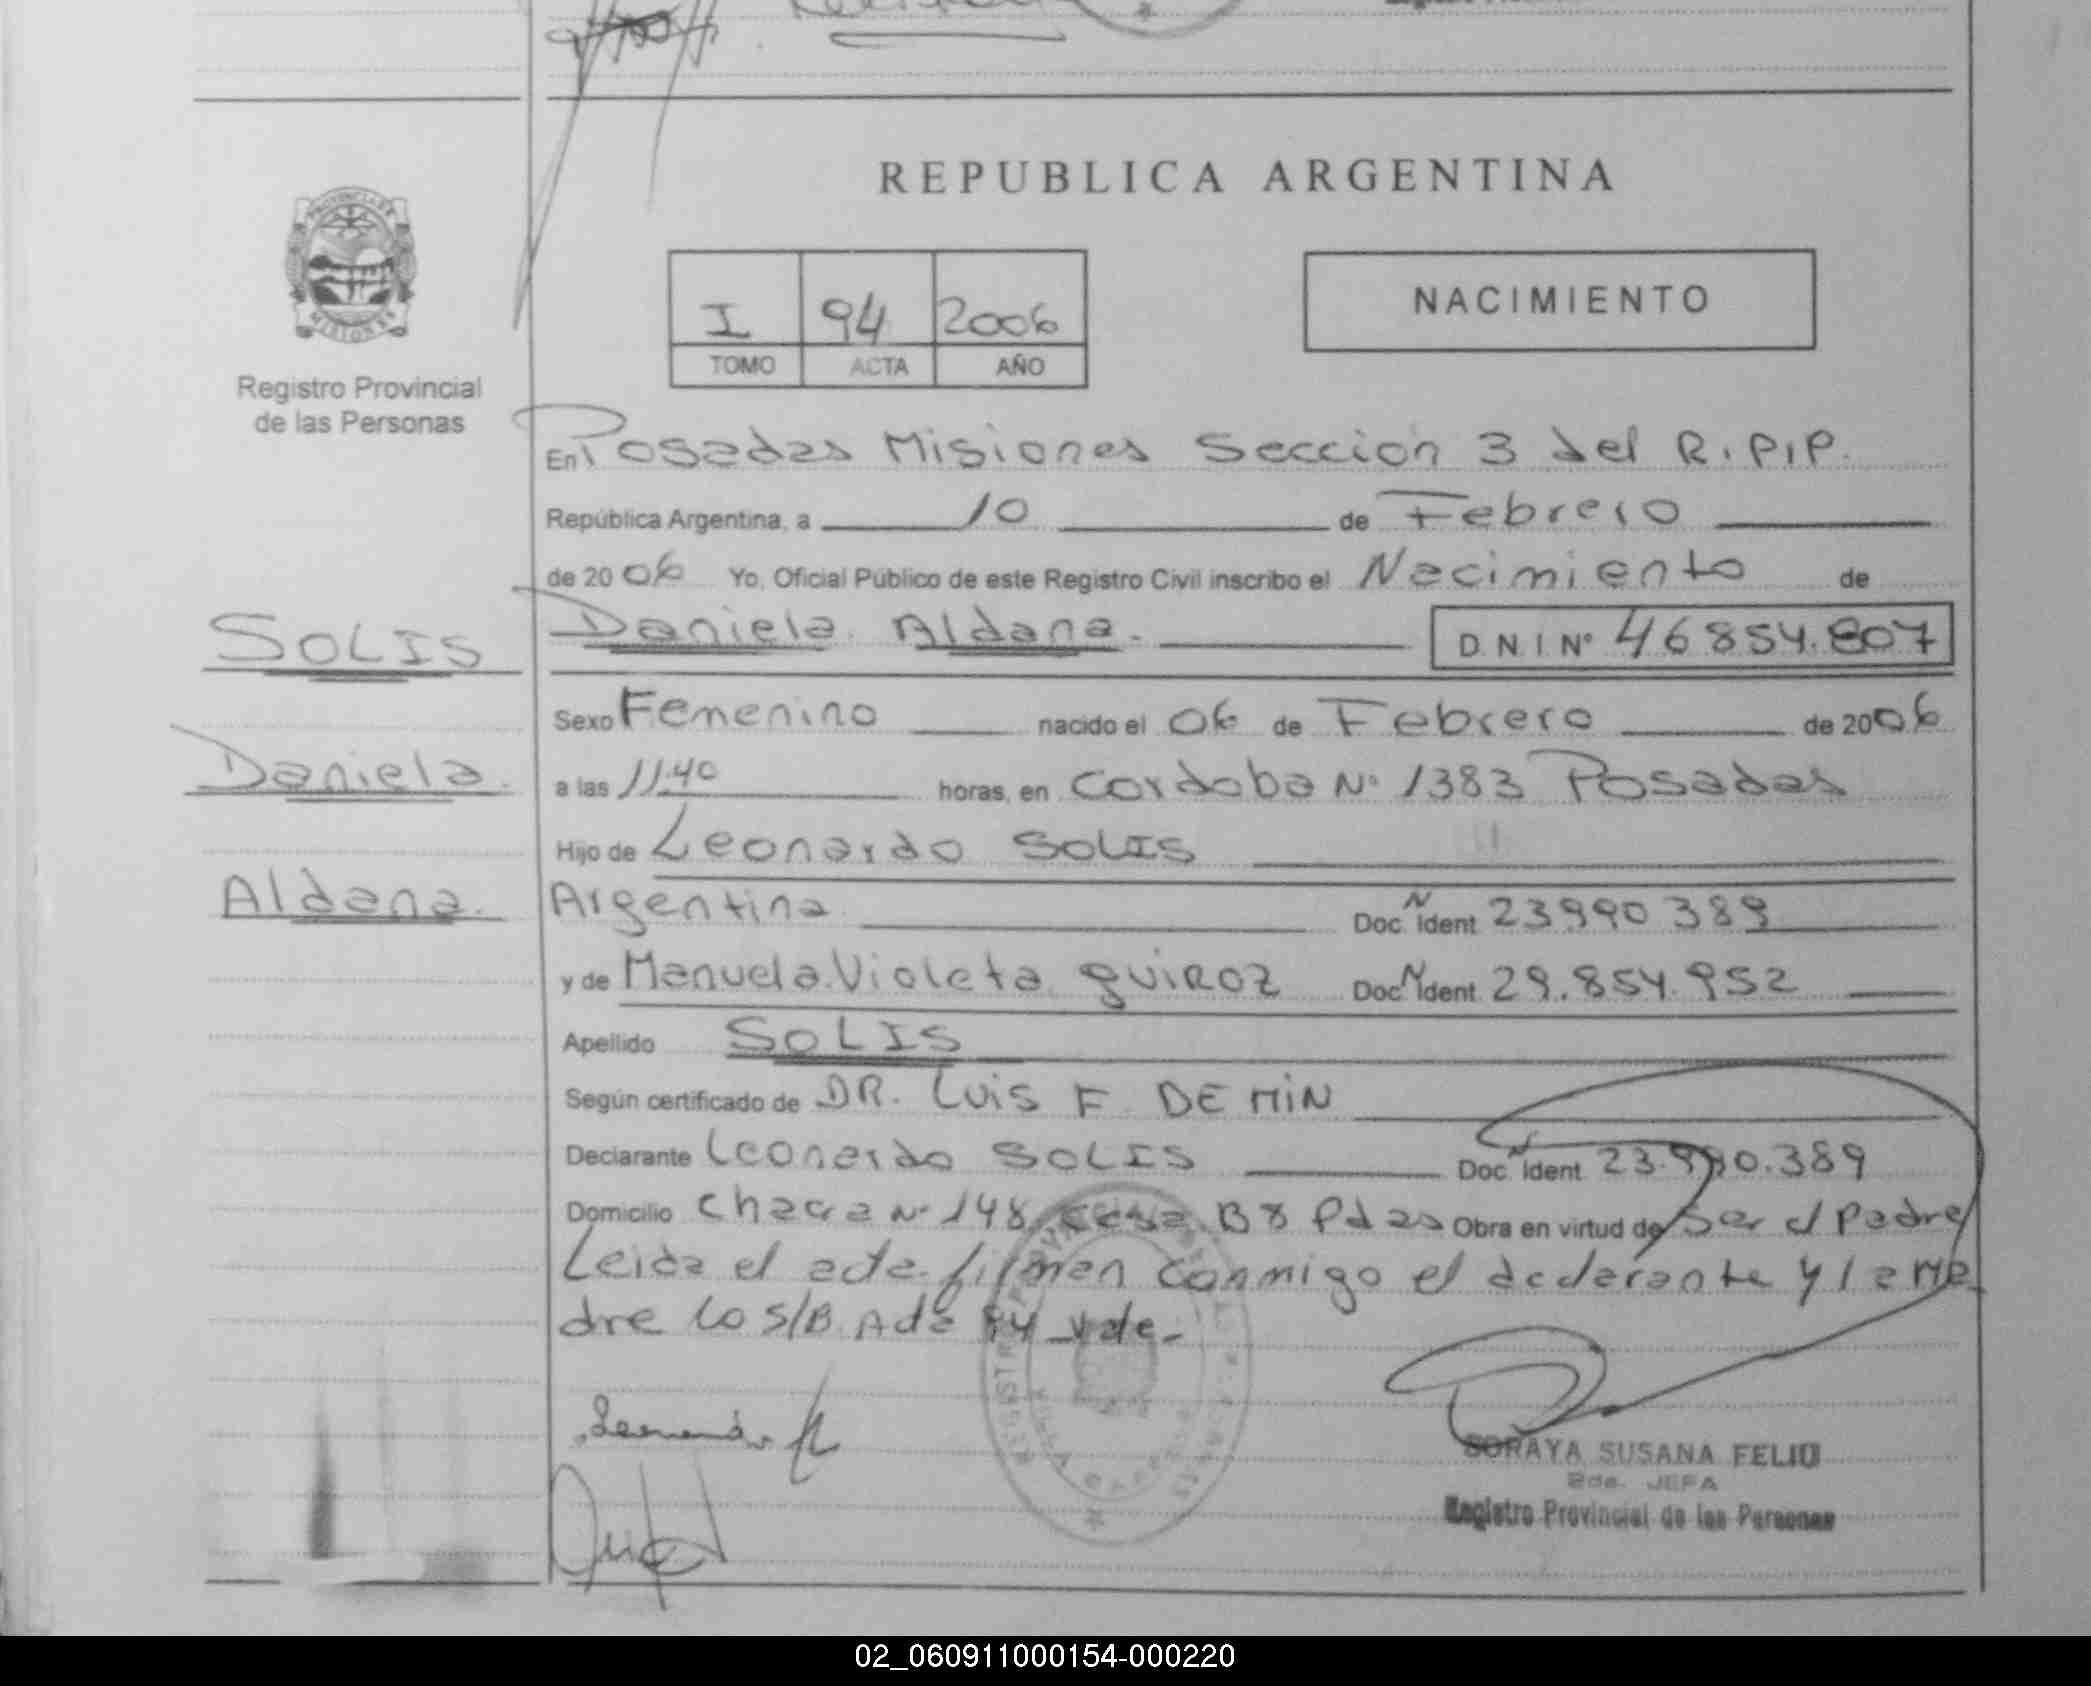 REPUBLICA ARGENTINA
PROVINCIA DE
MISIONES
Registro Provincial
de las Personas
I 94 2006
TOMO ACTA AÑO
NACIMIENTO
En Posadas Misiones Sección 3 del R.P.P.
República Argentina, a 10 de Febrero
de 2006 Yo, Oficial Público de este Registro Civil inscribo el Nacimiento de
SOLIS
Daniela Aldana. D.N.I Nº 46854.807
Sexo Femenino nacido el 06 de Febrero de 2006
Daniela.
a las 11:40 horas, en Cordoba Nº 1383 Posadas
Hijo de Leonardo SOLIS
Aldana.
Argentina Doc. N Ident 23990389
y de Manuela Violeta QUIROZ Doc N Ident 29.854.952
Apellido SOLIS
Según certificado de DR. Luis F DEMIN
Declarante Leonardo SOLIS Doc N Ident 23.990.389
Domicilio Chacra Nº 148 Casa B8 Pdas Obra en virtud de Ser el Padre
Leida el acta firman conmigo el declarante y la ma
dre lo S/B. Acta 94 Vale-
SORAYA SUSANA FELIU
2da. JEFA
Registro Provincial de las Personas
02_060911000154-000220